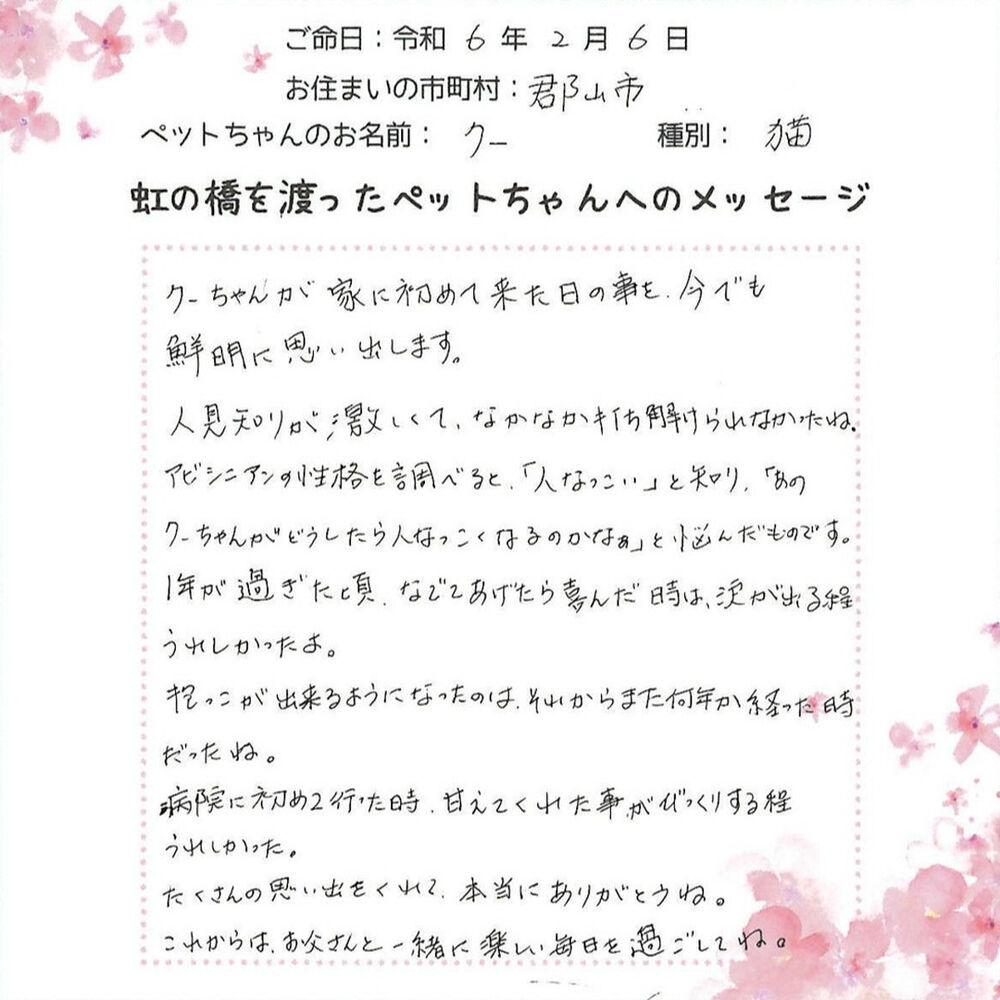 ご命日：令和 6 年 2 月 6 日
お住まいの市町村：郡山市
ペットちゃんのお名前： クー 種別： 猫
虹の橋を渡ったペットちゃんへのメッセージ
クーちゃんが家に初めて来た日の事を、今でも
鮮明に思い出します。
人見知りが激しくて、なかなか打ち解けられなかったね。
アビシニアンの性格を調べると、「人なっこい」と知り、「あの
クーちゃんがどうしたら人なっこくなるのかなぁ」と悩んだものです。
1年が過ぎた頃、なでてあげたら喜んだ時は、涙が出る程
うれしかったよ。
抱っこが出来るようになったのは、それからまた何年か経った時
だったね。
病院に初めて行った時、甘えてくれた事がびっくりする程
うれしかった。
たくさんの思い出をくれて、本当にありがとうね。
これからは、お父さんと一緒に楽しい毎日を過ごしてね。